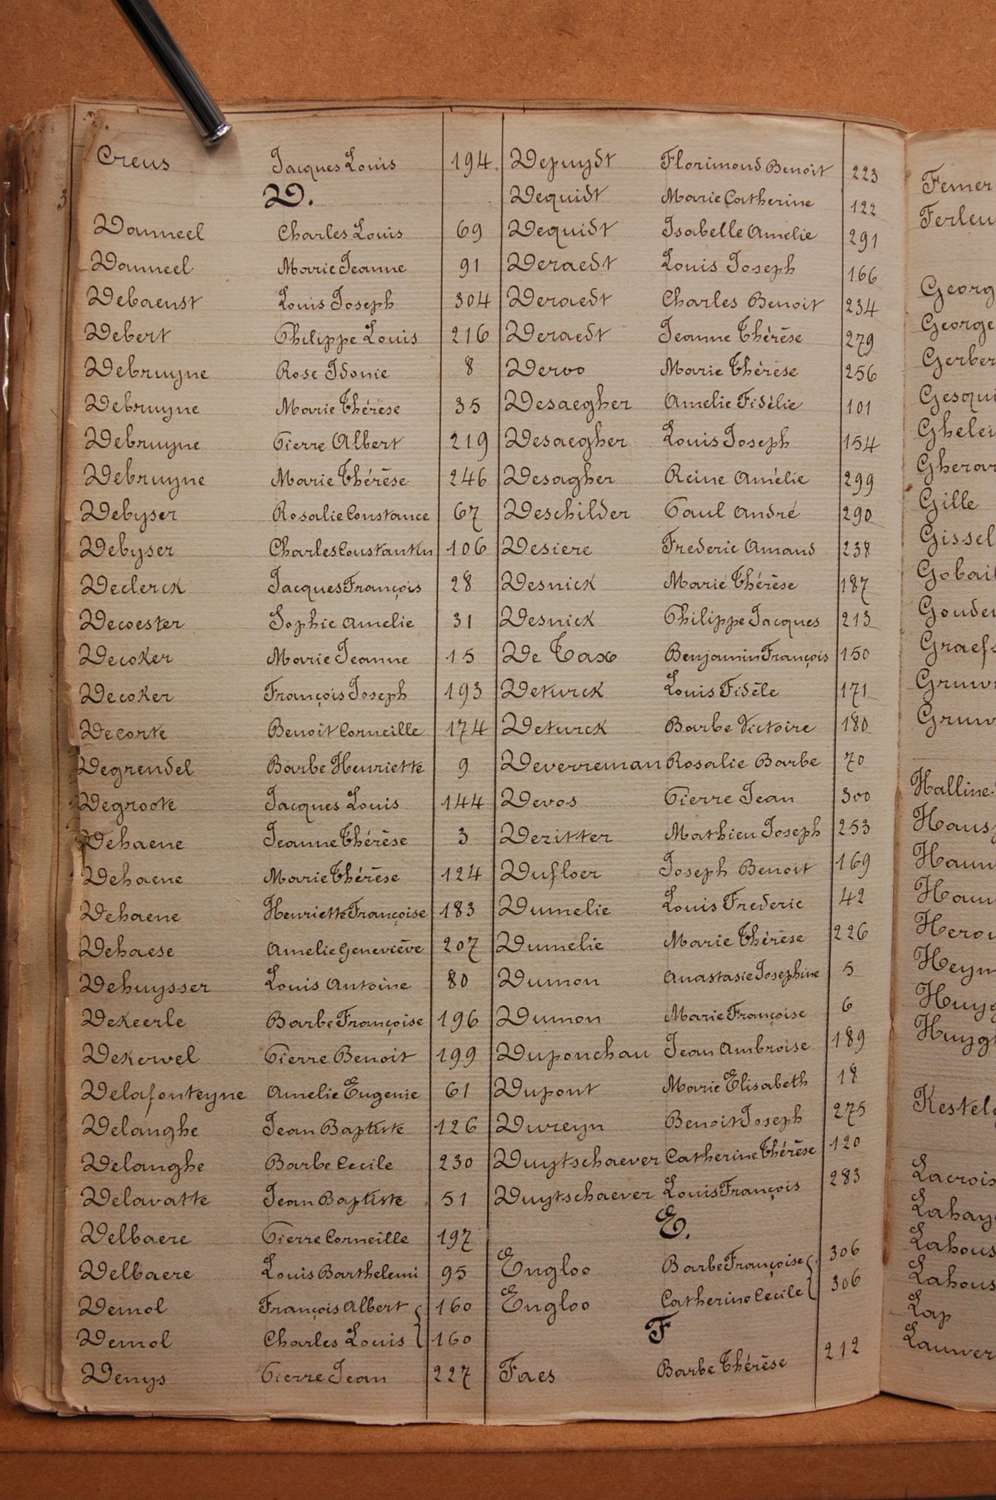 Creus Jacques Louis 194.
D.
Danneel Charles Louis 69
Danneel Marie Jeanne 91
Debaenst Louis Joseph 304
Debert Philippe Louis 216
Debruyne Rose Idonie 8
Debruyne Marie Thérèse 35
Debruyne Pierre Albert 219
Debruyne Marie Thérèse 246
Debyser Rosalie Constance 67
Debyser Charles Constantin 106
Declerck Jacques François 28
Decoester Sophie Amelie 31
Decoker Marie Jeanne 15
Decoker François Joseph 193
Decorte Benoit Corneille 174
Degrendel Barbe Henriette 9
Degroote Jacques Louis 144
Dehaene Jeanne Thérèse 3
Dehaene Marie Thérèse 124
Dehaene Henriette Françoise 183
Dehaese Amelie Geneviève 207
Dehuysser Louis Antoine 80
Dekeerle Barbe Françoise 196
Dekervel Pierre Benoit 199
Delafonteyne Amelie Eugenie 61
Delanghe Jean Baptiste 126
Delanghe Barbe Cecile 230
Delavatte Jean Baptiste 51
Delbaere Pierre Corneille 197
Delbaere Louis Barthelemi 95
Demol François Albert 160
Demol Charles Louis 160
Denys Pierre Jean 227
Depuydt Florimond Benoit 223
Dequidt Marie Catherine 122
Dequidt Isabelle Amelie 291
Deraedt Louis Joseph 166
Deraedt Charles Benoit 234
Deraedt Jeanne Thérèse 279
Deroo Marie Thérèse 256
Desaegher Amelie Fidélie 101
Desaegher Louis Joseph 154
Desagher Reine Amélie 299
Deschilder Paul André 290
Desiere Frederic Amand 238
Desnick Marie Thérèse 187
Desnick Philippe Jacques 213
De Tax Benjamin François 150
Deturck Louis Fidèle 171
Deturck Barbe Victoire 180
Deverreman Rosalie Barbe 70
Devos Pierre Jean 300
Dezitter Mathieu Joseph 253
Dufloer Joseph Benoit 169
Dumelie Louis Frederic 42
Dumelie Marie Thérèse 226
Dumon Anastasie Josephine 5
Dumon Marie Françoise 6
Duponchau Jean Ambroise 189
Dupont Marie Elisabeth 18
Dureyn Benoit Joseph 275
Duytschaever Catherine Thérèse 120
Duytschaever Louis François 283
E.
Engloo Barbe Françoise 306
Engloo Catherine Cecile 306
F
Faes Barbe Thérèse 212
Gille
Lap